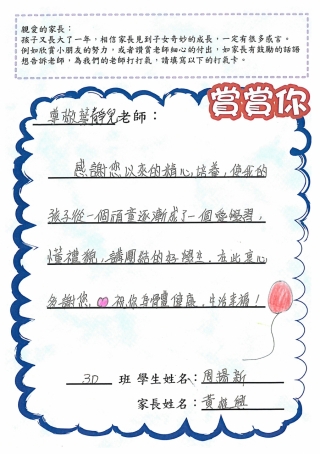 親愛的家長：
孩子又長大了一年，相信家長見到子女奇妙的成長，一定有很多感言。
例如欣賞小朋友的努力，或者讚賞老師細心的付出，如家長有鼓勵的話語
想告訴老師，為我們的老師打打氣，請填寫以下的打氣卡。
賞賞你
尊敬葉靜兒老師：
感謝您以來的精心培養，使我的
孩子從一個頑童逐漸成了一個愛學習，
懂禮貌，講團結的好學生，在此衷心
多謝您。祝你身體健康，生活幸福！
3D 班 學生姓名：周揚新
家長姓名：黃 興